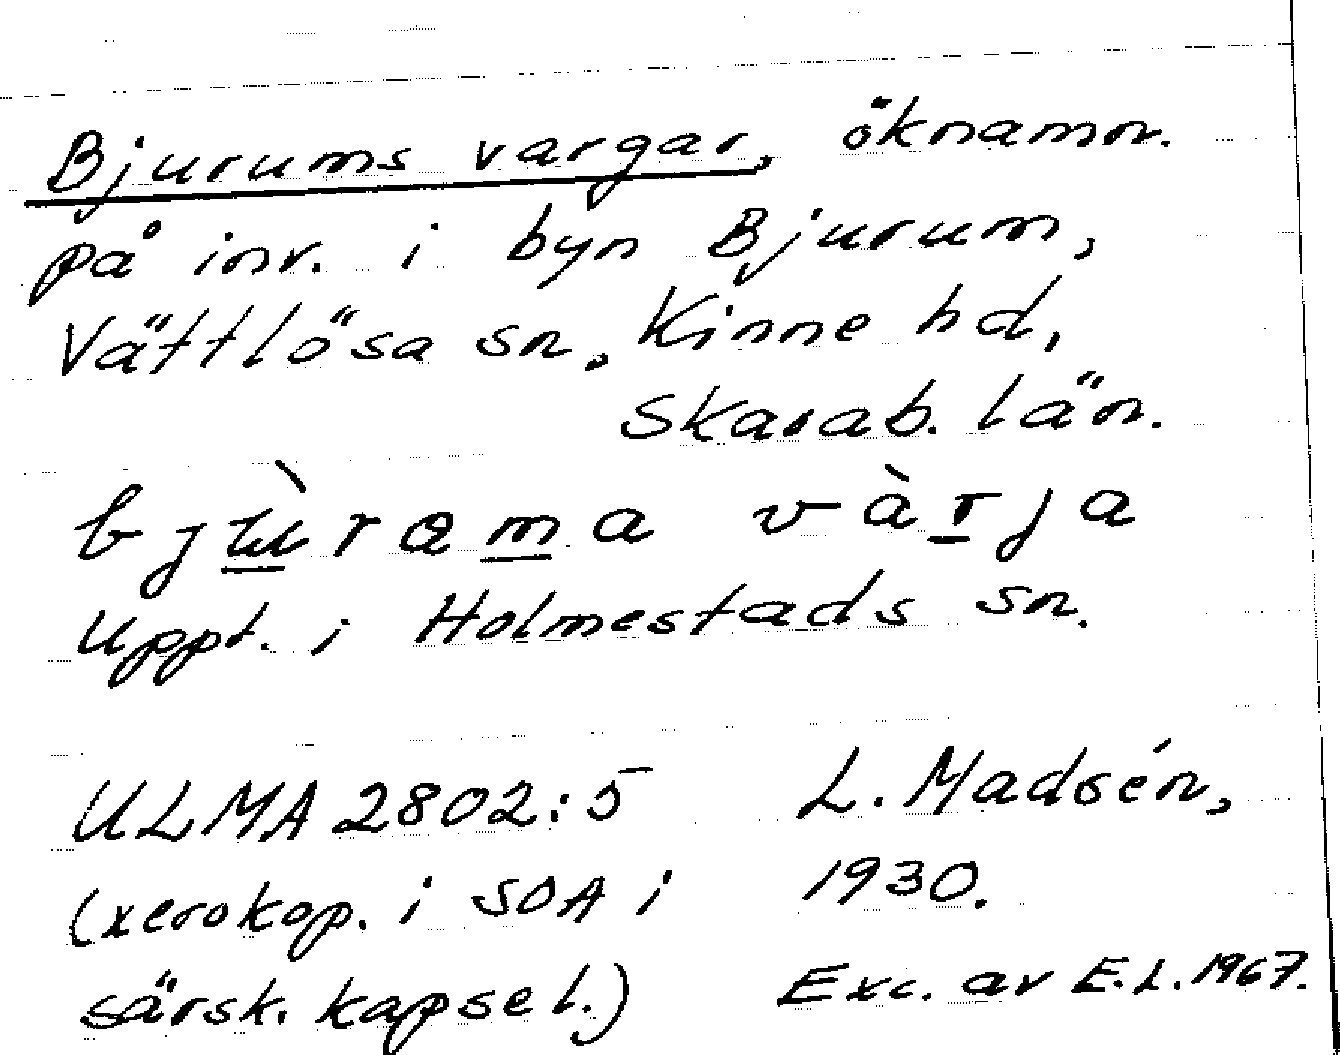 Bjurums vargar, öknamn.
på inv. i byn Bjurum,
Vättlösa sn. Kinne hd,
Skarab. län.
vàrja
Uppt. i Holmestads sn.
ULMA 2802:5 L. Madsén,
(xerokop. i SOA i 1930.
särsk. kapsel.) Exc. av E.L. 1967.